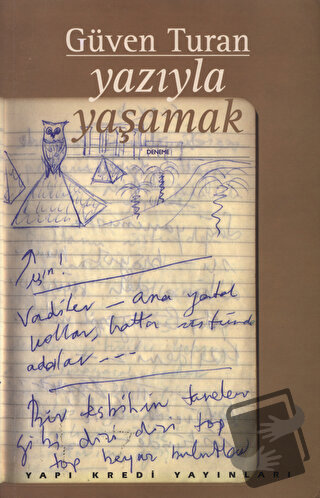 Güven Turan
yazıyla
yaşamak
DENEME
için!
Vadiler – ana yatak
kollar, hatta üstünde
adalar ---
Bir tesbihin taneleri
gibi dizi dizi top
top beyaz bulutlar
YAPI KREDİ YAYINLARI
Hayat